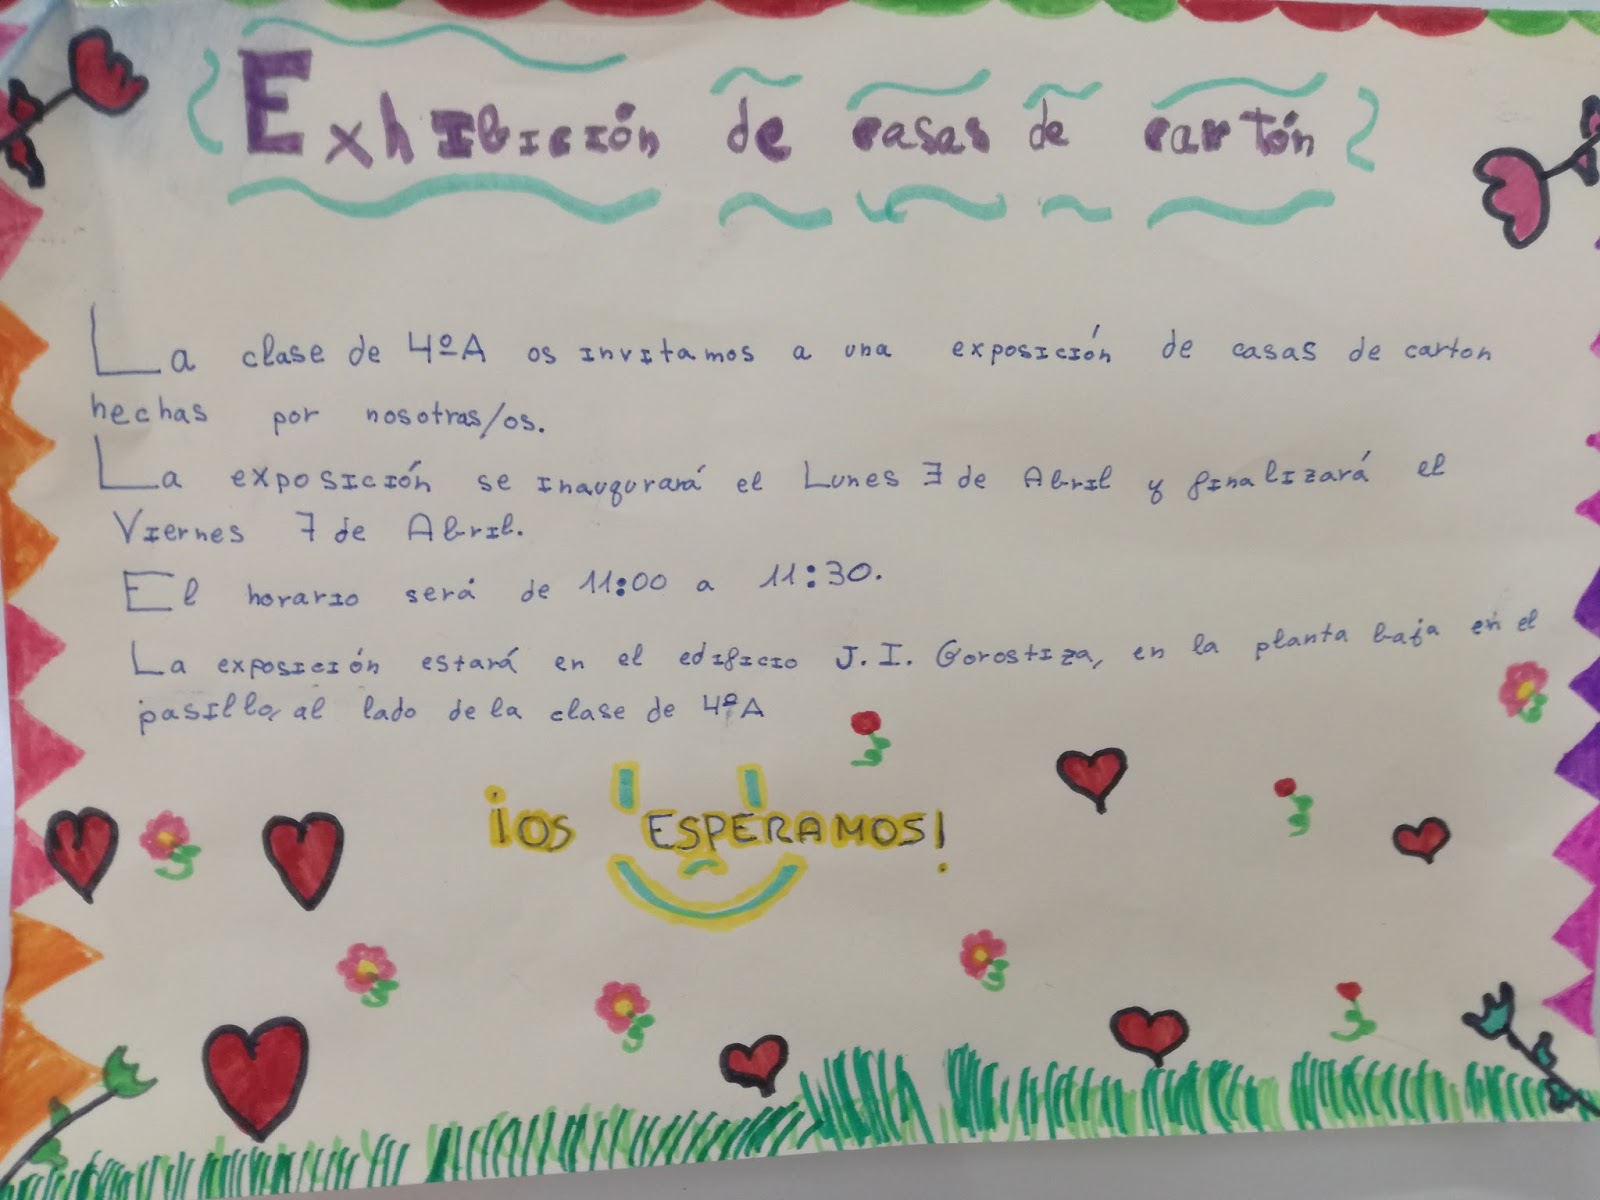 Exhibición de casas de cartón
La clase de 4ºA os invitamos a una exposición de casas de carton
hechas por nosotras/os.
La exposición se inaugurará el Lunes 3 de Abril y finalizará el
Viernes 7 de Abril.
El horario será de 11:00 a 11:30.
La exposición estará en el edificio J. I. Gorostiza, en la planta baja en el
pasillo, al lado de la clase de 4ºA
¡OS ESPERAMOS!